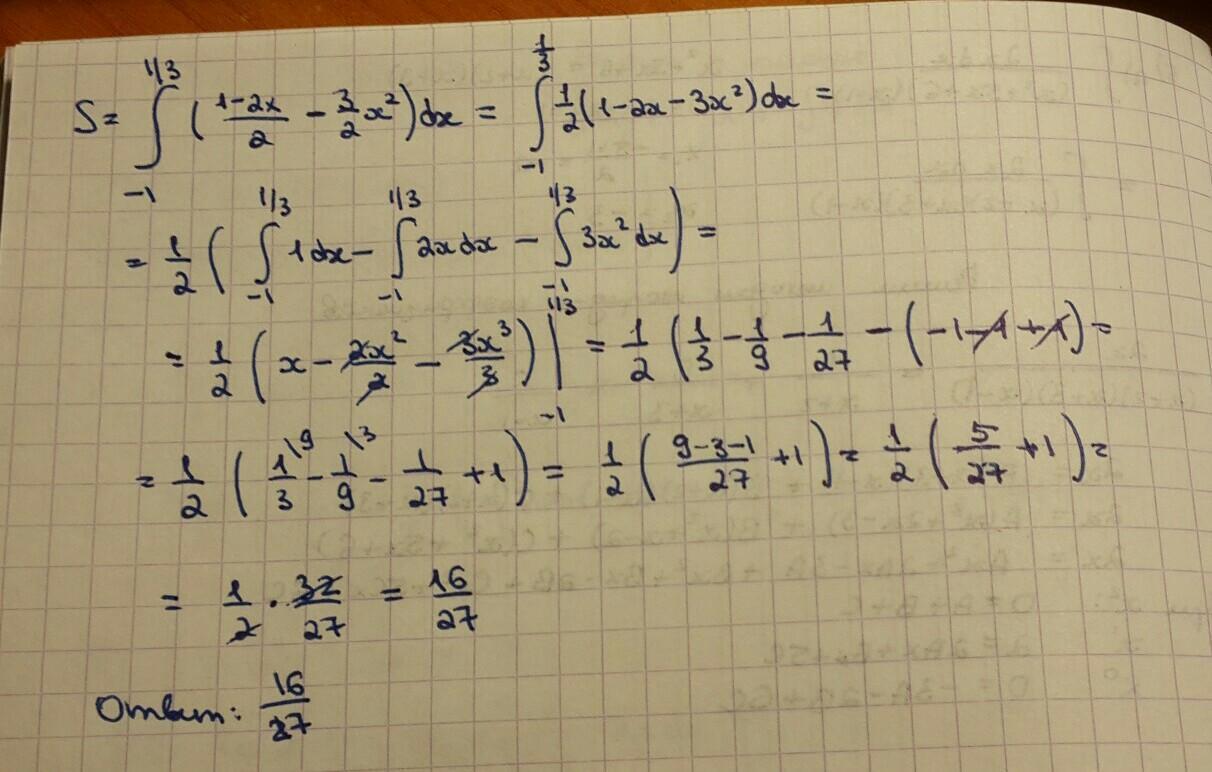 S = ∫_{-1}^{1/3} ( (1-2x)/2 - 3/2 x² ) dx = ∫_{-1}^{1/3} 1/2 (1-2x-3x²) dx =
= 1/2 ( ∫_{-1}^{1/3} 1dx - ∫_{-1}^{1/3} 2x dx - ∫_{-1}^{1/3} 3x² dx ) =
= 1/2 ( x - 2x²/2 - 3x³/3 ) |_{-1}^{1/3} = 1/2 ( 1/3 - 1/9 - 1/27 - (-1-1+1) =
= 1/2 ( 1/3 \9 - 1/9 \3 - 1/27 + 1 ) = 1/2 ( (9-3-1)/27 + 1 ) = 1/2 ( 5/27 + 1 ) =
= 1/2 · 32/27 = 16/27
Ответ: 16/27